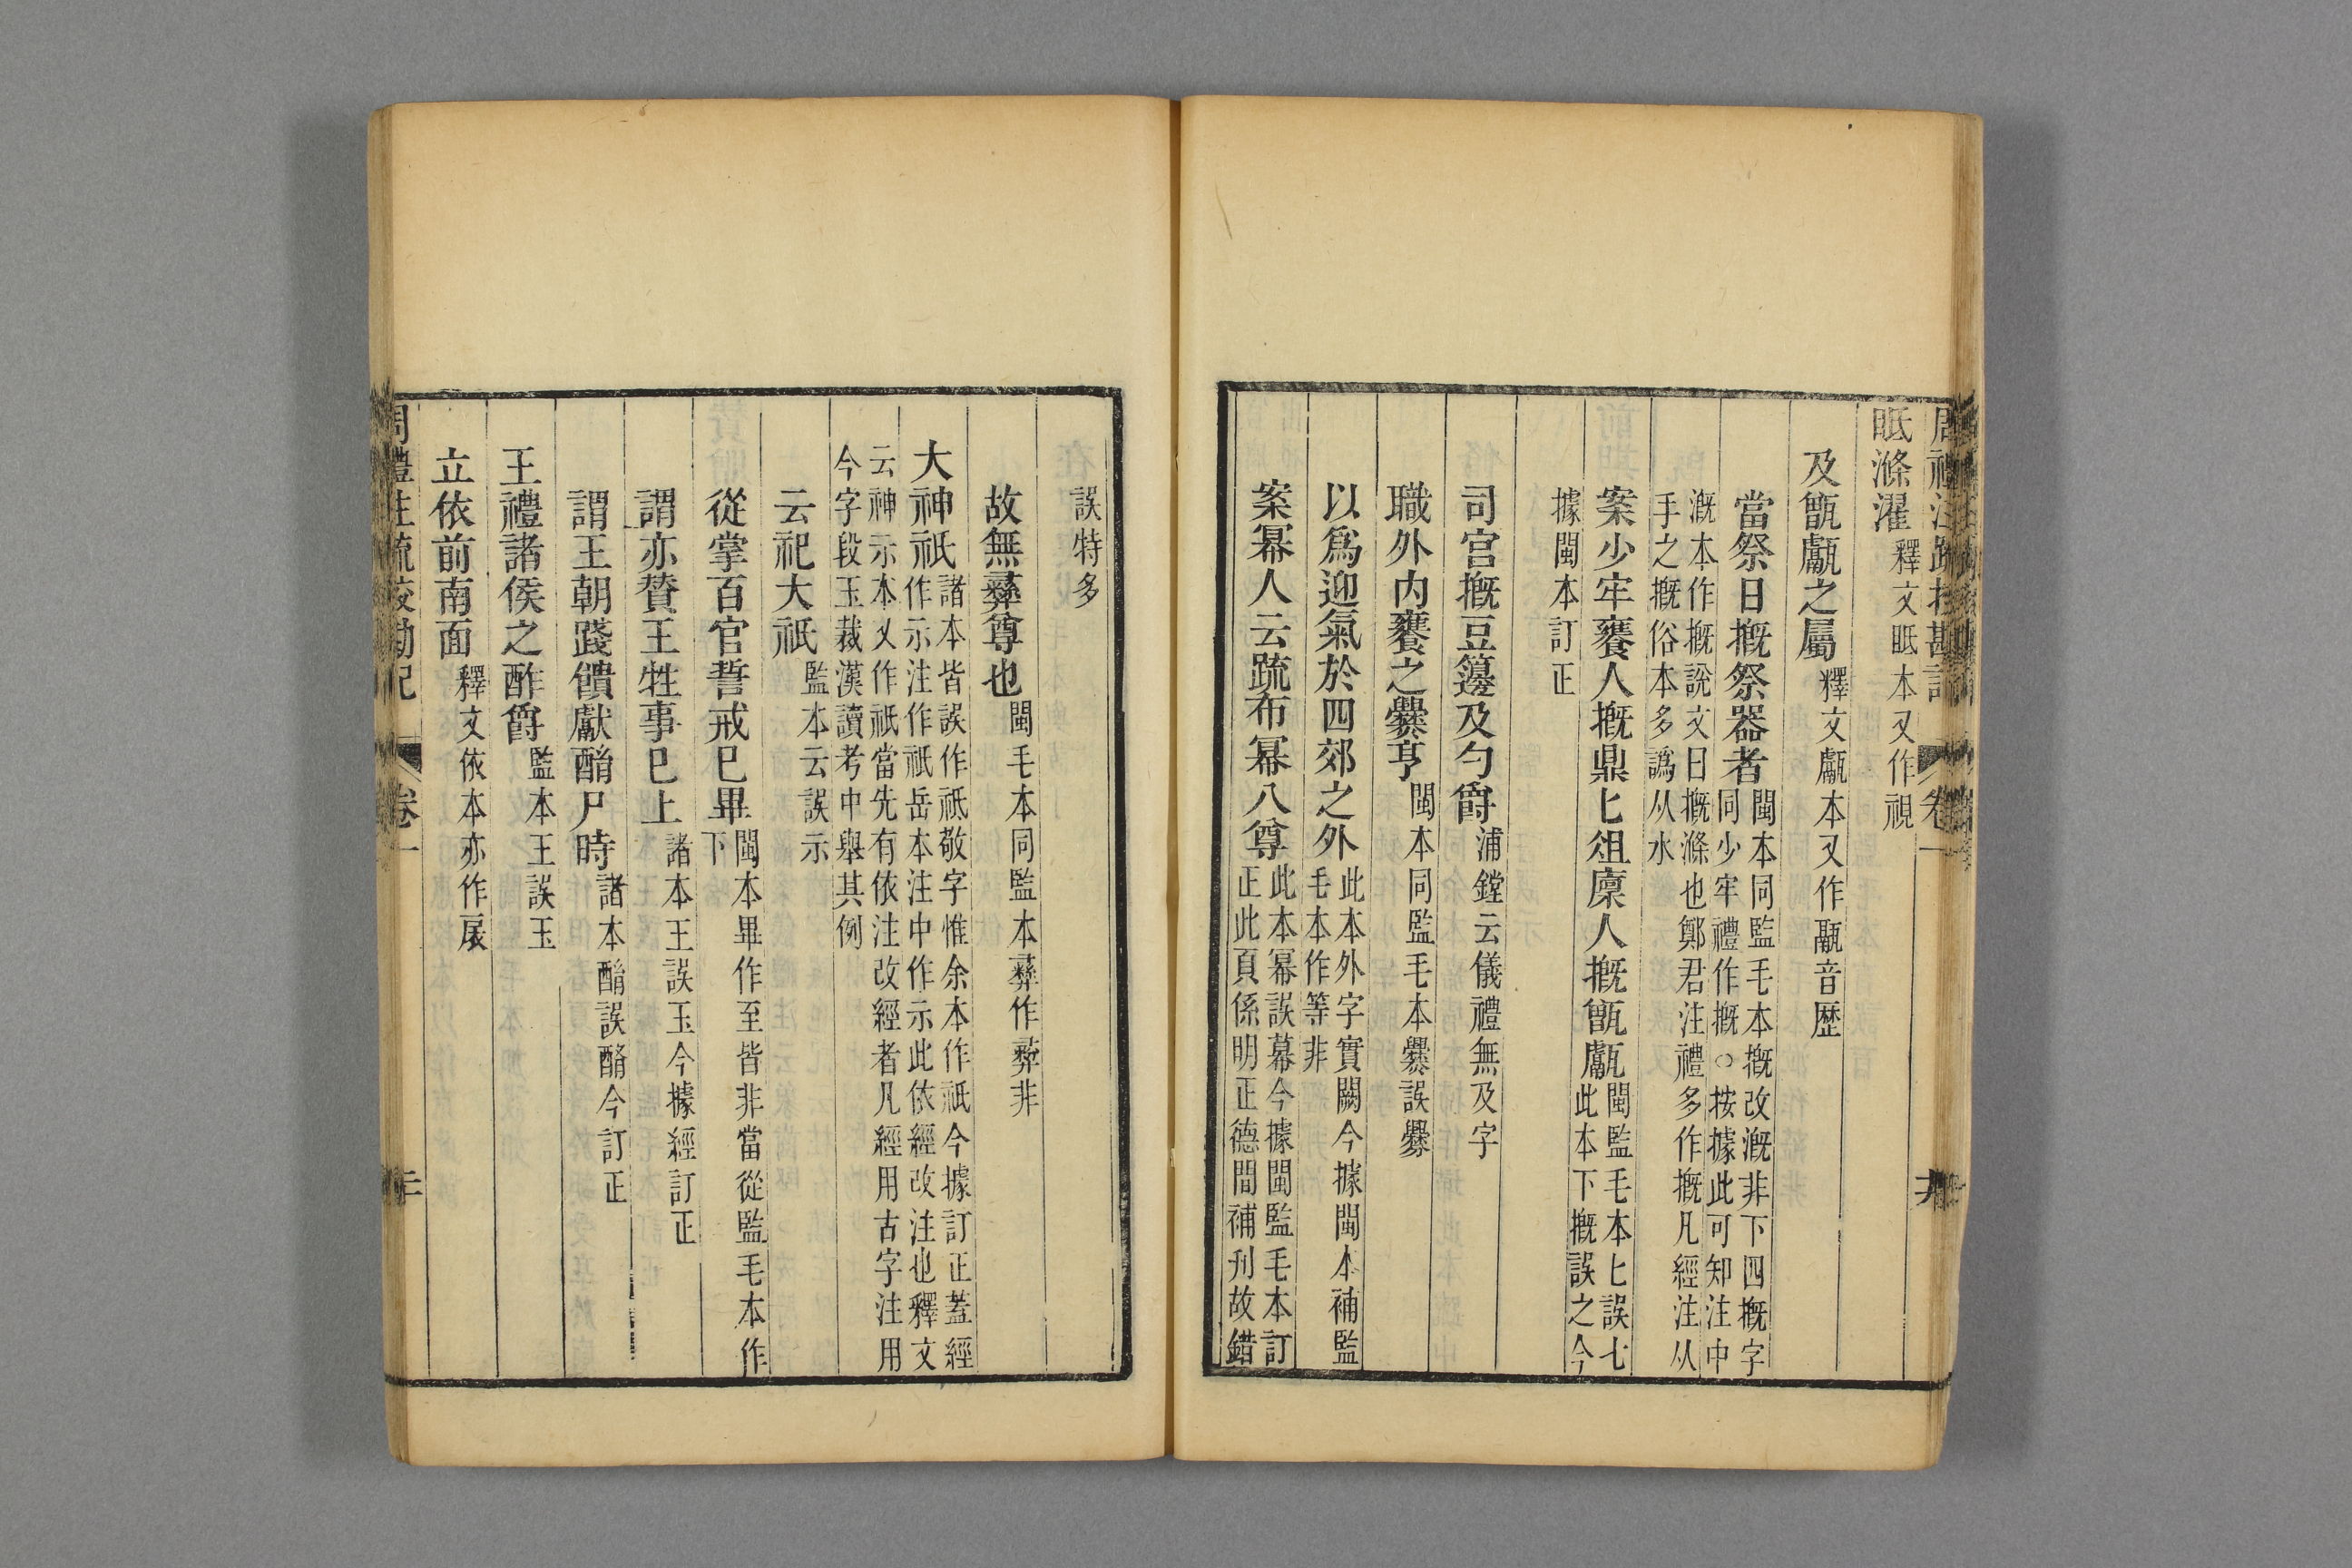 周禮注疏挍勘記 卷一 十九
眡滌濯釋文眡本又作視
及甑甗之屬釋文甗本又作鬳音歷
當祭日摡祭器者閩本同監毛本摡改溉非下四摡字同少牢禮作摡○按據此可知注中
溉本作摡說文曰摡滌也鄭君注禮多作摡凡經注从手之摡俗本多譌从水
案少牢饔人摡鼎匕俎廩人摡甑甗閩監毛本匕誤七此本下摡誤之今
據閩本訂正
司宮摡豆籩及勺爵浦鏜云儀禮無及字
職外内饔之爨亨閩本同監毛本爨誤爨
以爲迎氣於四郊之外此本外字實闕今據閩本補監毛本作等非
案冪人云疏布冪八尊此本冪誤幕今據閩監毛本訂正此頁係明正德間補刋故錯
誤特多
故無彝尊也閩毛本同監本彝作彛非
大神祇諸本皆誤作祗敬字惟余本作祇今據訂正葢經作示注作祇岳本注中作示此依經改注也釋文
云神示本又作祇當先有依注改經者凡經用古字注用今字段玉裁漢讀考中舉其例
云祀大祇監本云誤示
從掌百官誓戒巳畢閩本畢作至皆非當從監毛本作下
謂亦贊王牲事巳上諸本王誤玉今據經訂正
謂王朝踐饋獻酳尸時諸本酳誤酯今訂正
王禮諸侯之酢爵監本王誤玉
立依前南面釋文依本亦作扆
周禮注疏挍勘記 卷一 二十